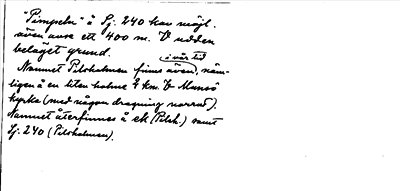 "Pimpeln" å Sj. 240 kan möjl.
även avse ett 400 m. V udden
beläget grund.
i vår tid
Namnet Pilsholmen finns även, näm-
ligen å en liten holme 4 km. V Munsö
kyrka (med någon dragning norrut).
Namnet återfinnes å ek (Pilsh.) samt
Sj. 240 (Pilsholmen).